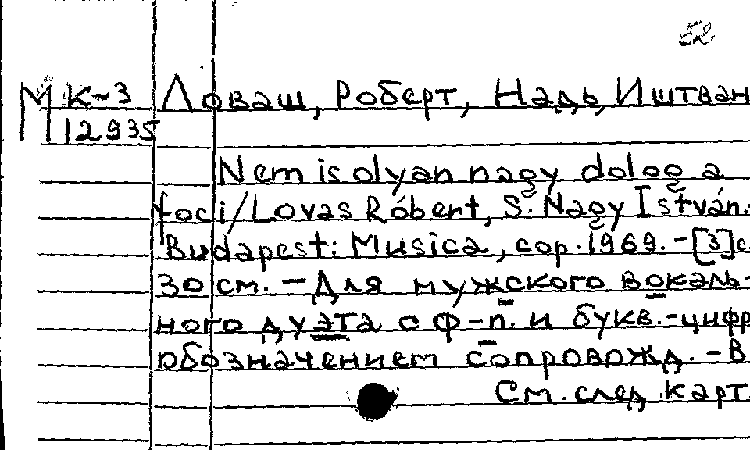 МК-3 Ловаш, Роберт, Надь, Иштван
12935
Nem is olyan nagy dolog a
foci/Lovas Róbert, S. Nagy István.
Budapest: Musica, cop. 1969. - [3] с
30 см. - Для мужского вокаль-
ного дуэта с ф-п. и букв.-цифр
обозначением сопровожд. - В
См. след. карт.